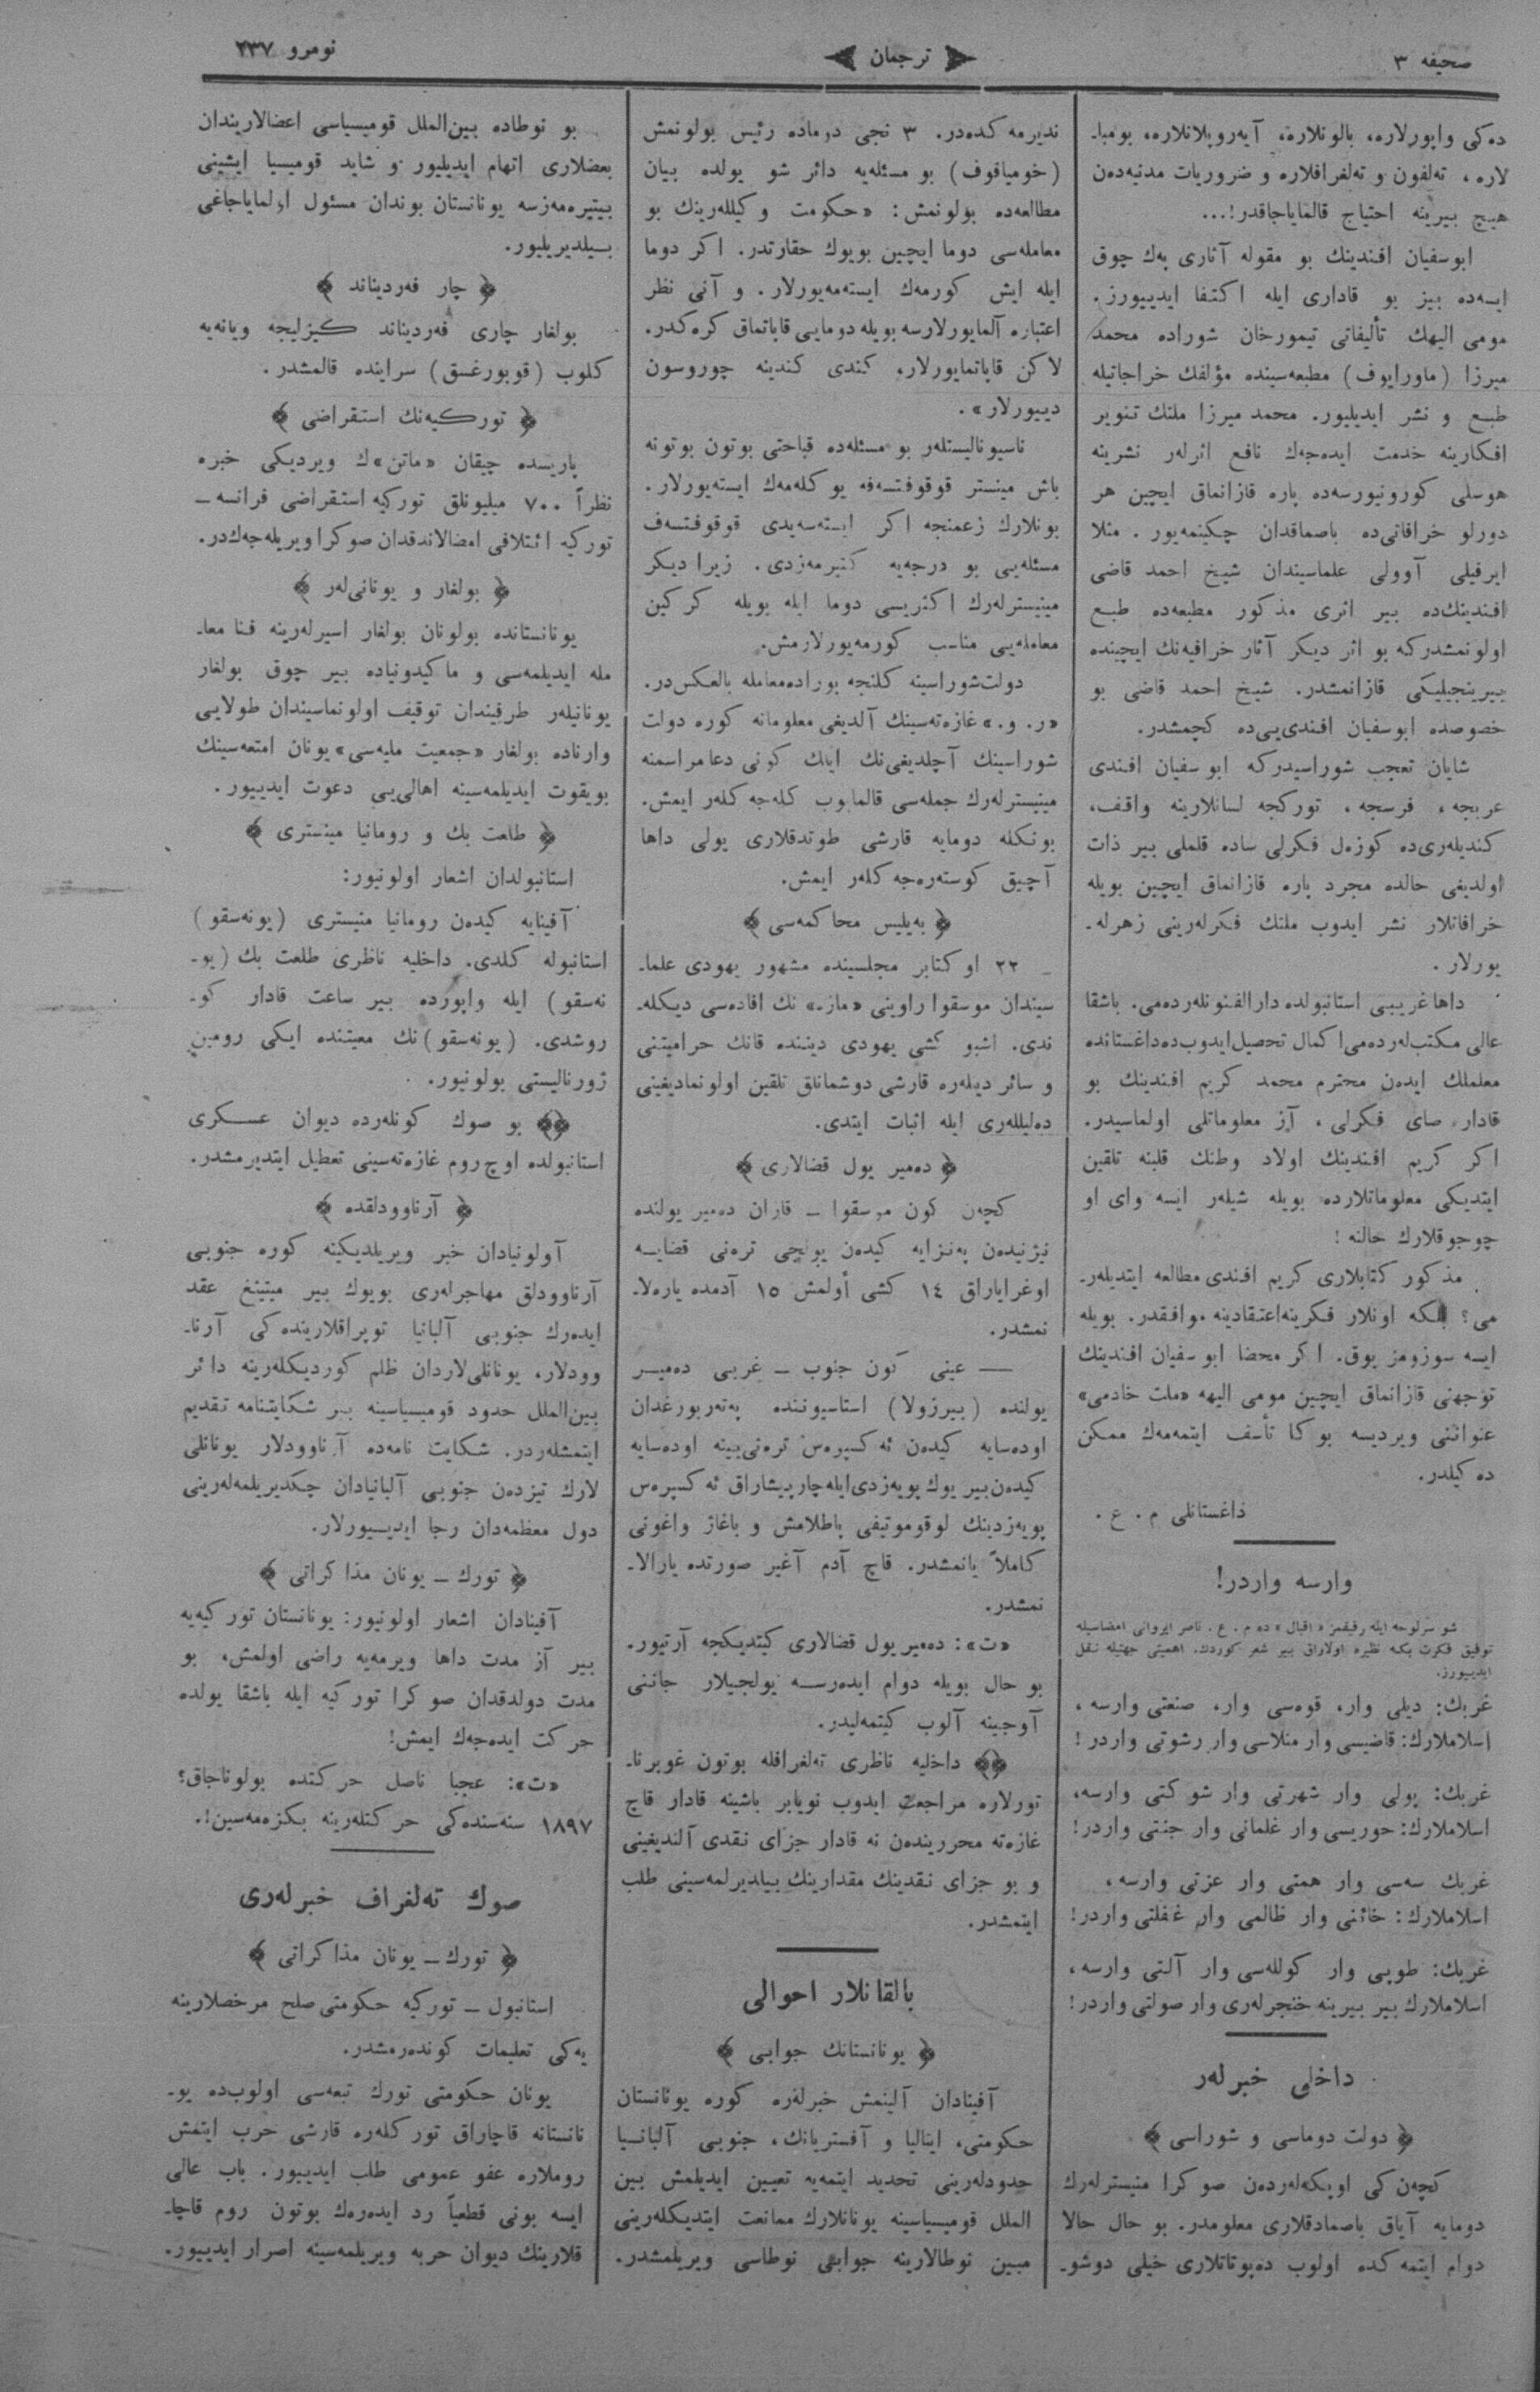 صحیفه ٣
ترجمان
نومرو ٢٣٧
ده‌كی واپورلاره، بالونلاره، آیه‌روپلانلاره، بومبا-
لاره، ته‌لفون و ته‌لغرافلاره و ضروریات مدنیه‌دن
هیچ بیرینه احتیاج قالمایاجاقدر!...
ابوسفیان افندینك بو مقوله آثاری پەك چوق
ایسه‌ده بیز بو قاداری ایله اكتفا ایدییورز.
مومی الیهك تألیفاتی تیمورخان شوراده محمد
میرزا (ماورایوف) مطبعه‌سینده مؤلفك خراجاتیله
طبع و نشر ایدیلیور. محمد میرزا ملتك تنویر
افكارینه خدمت ایده‌جه‌ك نافع اثرلەر نشرینه
هوسلی كورونیورسه‌ده پاره قازانماق ایچین هر
دورلو خرافاتی‌ده باصماقدان چكینمه‌یور. مثلا
ایرفیلی آوولی علماسیندان شیخ احمد قاضی
افندینك‌ده بیر اثری مذكور مطبعه‌ده طبع
اولونمشدركه بو اثر دیكر آثار خرافیه‌نك ایچینده
بیرینجیلیكی قازانمشدر. شیخ احمد قاضی بو
خصوصده ابوسفیان افندی‌یی‌ده كچمشدر.
شایان تعجب شوراسیدركه ابو سفیان افندی
عربجه، فرسجه، توركجه لسانلارینه واقف،
كندیله‌ری‌ده كوزه‌ل فكرلی ساده قلملی بیر ذات
اولدیغی حالده مجرد پاره قازانماق ایچین بویله
خرافاتلار نشر ایدوب ملتك فكرله‌رینی زهرله-
یورلار.
داها غریبی استانبولده دارالفنونلەرده‌می. باشقا
عالی مكتب‌لەرده‌می اكمال تحصیل ایدوب‌ده داغستانده
معلملك ایدەن محترم محمد كریم افندینك بو
قادار صای فكرلی، آز معلوماتلی اولماسیدر.
اكر كریم افندینك اولاد وطنك قلبنه تلقین
ایتدیكی معلوماتلارده بویله شیلەر ایسه وای او
چوجوقلارك حالنه!
مذكور كتابلاری كریم افندی مطالعه ایتدیلەر-
می؟ بلكه اونلار فكرینه اعتقادینه موافقدر. بویله
ایسه سوزومز یوق. اكر محضا ابو سفیان افندینك
توجهنی قازانماق ایچین مومی الیهه «ملت خادمی»
عنواننی ویردیسه بوكا تأسف ایتمه‌مه‌ك ممكن
ده‌كیلدر.
داغستانلی م. ع.
وارسه واردر!
شو سرلوحه ایله رفیقمز «اقبال» ده م. ع. ناصر ایروانی امضاسیله
توفیق فكرت بكه نظیره اولاراق بیر شعر كوردك. اهمیتی جهتیله نقل
ایدییورز.
غربك: دیلی وار، قوه‌سی وار، صنعتی وارسه،
اسلاملارك: قاضیسی وار منلاسی وار رشوتی واردر!
غربك: پولی وار شهرتی وار شوكتی وارسه،
اسلاملارك: حوریسی وار غلمانی وار جنتی واردر!
غربك سه‌سی وار همتی وار عزتی وارسه،
اسلاملارك: خائنی وار ظالمی وار غفلتی واردر!
غربك: طوپی وار كولله‌سی وار آلتی وارسه،
اسلاملارك بیر بیرینه خنجرلەری وار صولتی واردر!
داخلی خبرلەر
﴿ دولت دوماسی و شوراسی ﴾
كچەن كی اویكه‌لەردەن صوكرا منیسترلەرك
دومایه آیاق باصمادقلاری معلومدر. بو حال حالا
دوام ایتمه‌كده اولوب ده‌پوتاتلاری خیلی دوشو-
ندیرمه‌كده‌در. ٣ نجی دوماده رئیس بولونمش
(خومیاقوف) بو مسئله‌یه دائر شو یولده بیان
مطالعه‌ده بولونمش: «حكومت وكیللەرینك بو
معامله‌سی دوما ایچین بویوك حقارتدر. اكر دوما
ایله ایش كورمه‌ك ایسته‌مه‌یورلار. و آنی نظر
اعتباره آلمایورلارسه بویله دومایی قاپاتماق كره‌كدر.
لاكن قاپاتمایورلار، كندی كندینه چوروسون
دییورلار».
ناسیونالیستلەر بو مسئله‌ده قباحتی بوتون بوتونه
باش مینستر قوقوفتسەفه یوكله‌مه‌ك ایسته‌یورلار.
بونلارك زعمنجه اكر ایسته‌سه‌یدی قوقوفتسەف
مسئله‌یی بو درجه‌یه كتیرمه‌زدی. زیرا دیكر
مینیسترلەرك اكثریسی دوما ایله بویله كركین
معامله‌یی مناسب كورمه‌یورلارمش.
دولت شوراسینه كلنجه بوراده معامله بالعكس‌در.
«ر. و.» غازه‌ته‌سینك آلدیغی معلوماته كوره دولت
شوراسینك آچلدیغی‌نك ایلك كونی دعا مراسمنه
مینیسترلەرك جمله‌سی قالمایوب كله‌جه‌كلەر ایمش.
بونكله دومایه قارشی طوتدقلاری یولی داها
آچیق كوستەره‌جه‌كلەر ایمش.
﴿ به‌یلیس محاكمه‌سی ﴾
_ ٢٢ اوكتابر مجلسینده مشهور یهودی علما-
سیندان موسقوا راوینی «مازه» نك افاده‌سی دیكله-
ندی. اشبو كشی یهودی دیننده قانك حرامیتنی
و سائر دینلەره قارشی دوشمانلق تلقین اولونمادیغینی
ده‌لیللەری ایله اثبات ایتدی.
﴿ ده‌میر یول قضالاری ﴾
كچەن كون موسقوا _ قازان ده‌میر یولنده
نیژنیدەن پەنزایه كیدەن یولجی تره‌نی قضایه
اوغرایاراق ١٤ كشی أولمش ١٥ آدمده یارەلا-
نمشدر.
— عینی كون جنوب _ غربی ده‌میر
یولنده (بیرزولا) استاسیوننده پەتەربورغدان
اوده‌سایه كیدەن ئەكسپرەس تره‌نی‌یینه اوده‌سایه
كیدەن بیر یوك پویه‌زدی ایله چارپیشاراق ئەكسپرەس
پویه‌زدینك لوقوموتیفی پاطلامش و باغاژ واغونی
كاملاً یانمشدر. قاچ آدم آغیر صورتده یارالا-
نمشدر.
«ت»: ده‌میر یول قضالاری كیتدیكجه آرتیور.
بو حال بویله دوام ایدەرسه یولجیلار جاننی
آوجینه آلوب كیتمه‌لیدر.
﴿﴾ داخلیه ناظری ته‌لغرافله بوتون غوبرنا-
تورلاره مراجعت ایدوب نویابر باشینه قادار قاچ
غازه‌ته محرریندەن نه قادار جزای نقدی آلندیغینی
و بو جزای نقدینك مقدارینك بیلدیرلمه‌سینی طلب
ایتمشدر.
بالقانلار احوالی
﴿ یونانستانك جوابی ﴾
آفینادان آلینمش خبرلەره كوره یونانستان
حكومتی، ایتالیا و آفستریانك، جنوبی آلبانیا
حدودلەرینی تحدید ایتمه‌یه تعیین ایدیلمش بین
الملل قومیسیاسینه یونانلارك ممانعت ایتدیكلەرینی
مبین نوطالارینه جوابی نوطاسی ویریلمشدر.
بو نوطاده بین‌الملل قومیسیاسی اعضالاریندان
بعضلاری اتهام ایدیلیور و شاید قومیسیا ایشینی
بیتیره‌مه‌زسه یونانستان بوندان مسئول اولمایاجاغی
بیلدیریلیور.
﴿ چار فه‌ردیناند ﴾
بولغار چاری فه‌ردیناند كیزلیجه ویانه‌یه
كلوب (قوبورغسق) سراینده قالمشدر.
﴿ توركیه‌نك استقراضی ﴾
پاریسده چیقان «ماتن»ك ویردیكی خبره
نظراً ٧٠٠ میلیونلق توركیه استقراضی فرانسه _
توركیه ائتلافی امضالاندقدان صوكرا ویریله‌جه‌كدر.
﴿ بولغار و یونانی‌لەر ﴾
یونانستانده بولونان بولغار اسیرلەرینه فنا معا-
مله ایدیلمه‌سی و ماكیدونیاده بیر چوق بولغار
یونانیلەر طرفیندان توقیف اولونماسیندان طولایی
وارناده بولغار «جمعیت ملیه‌سی» یونان امتعه‌سینك
بویقوت ایدیلمه‌سینه اهالی‌یی دعوت ایدییور.
﴿ طلعت بك و رومانیا مینستری ﴾
استانبولدان اشعار اولونیور:
آفینایه كیدەن رومانیا منیستری (یونه‌سقو)
استانبوله كلدی. داخلیه ناظری طلعت بك (یو-
نه‌سقو) ایله واپورده بیر ساعت قادار كو-
روشدی. (یونه‌سقو)نك معیتنده ایكی رومین
ژورنالیستی بولونیور.
﴿﴾ بو صوك كونلەرده دیوان عسكری
استانبولده اوچ روم غازه‌ته‌سینی تعطیل ایتدیرمشدر.
﴿ آرناوودلقده ﴾
آولونیادان خبر ویریلدیكینه كوره جنوبی
آرناوودلق مهاجرلەری بویوك بیر میتینغ عقد
ایدەرك جنوبی آلبانیا توپراقلارینده‌كی آرنا-
وودلار، یونانلی‌لاردان ظلم كوردیكلەرینه دائر
بین‌الملل حدود قومیسیاسینه بیر شكایتنامه تقدیم
ایتمشلەردر. شكایت نامه‌ده آرناوودلار یونانلی
لارك تیزدەن جنوبی آلبانیادان چكدیریلمه‌لەرینی
دول معظمه‌دان رجا ایدییورلار.
﴿ تورك _ یونان مذاكراتی ﴾
آفینادان اشعار اولونیور: یونانستان توركیه‌یه
بیر آز مدت داها ویرمه‌یه راضی اولمش، بو
مدت دولدقدان صوكرا توركیه ایله باشقا یولده
حركت ایده‌جه‌ك ایمش!
«ت»: عجبا ناصل حركتده بولوناجاق؟
١٨٩٧ سنه‌سنده‌كی حركتلەرینه بكزه‌مه‌سین!.
صوك ته‌لغراف خبرلەری
﴿ تورك _ یونان مذاكراتی ﴾
استانبول _ توركیه حكومتی صلح مرخصلارینه
یه‌كی تعلیمات كوندەرمشدر.
یونان حكومتی تورك تبعه‌سی اولوب‌ده یو-
نانستانه قاچاراق توركلەره قارشی حرب ایتمش
روملاره عفو عمومی طلب ایدییور. باب عالی
ایسه بونی قطعیاً رد ایدەره‌ك بوتون روم قاچا-
قلارینك دیوان حربه ویریلمه‌سینه اصرار ایدییور.